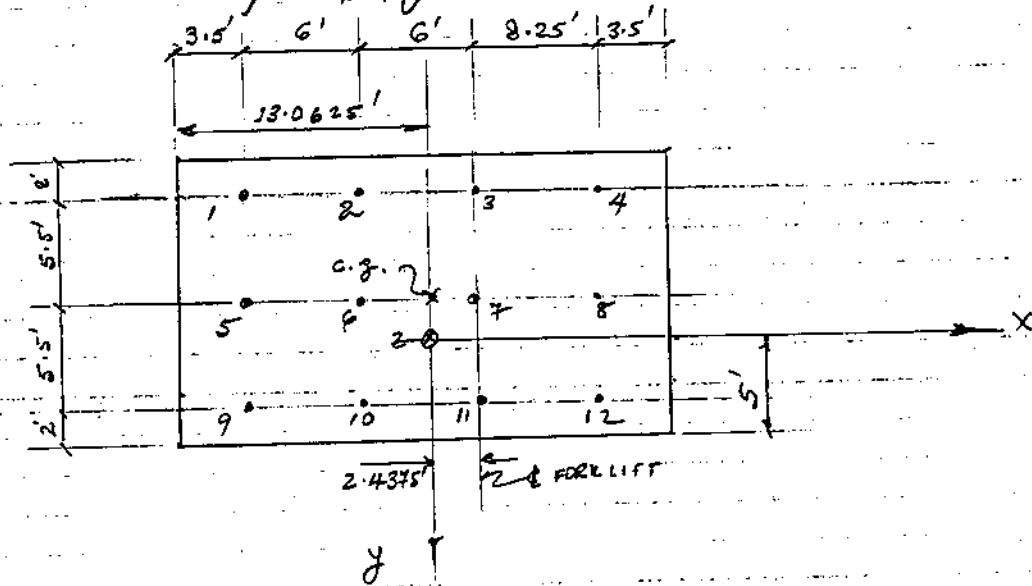 3.5' 6' 6' 8.25' 3.5'
13.0625'
2'
1 2 3 4
5.5'
c.g.
5 6 7 8
Z X
5.5'
5'
9 10 11 12
2'
2.4375' ℄ FORKLIFT
y